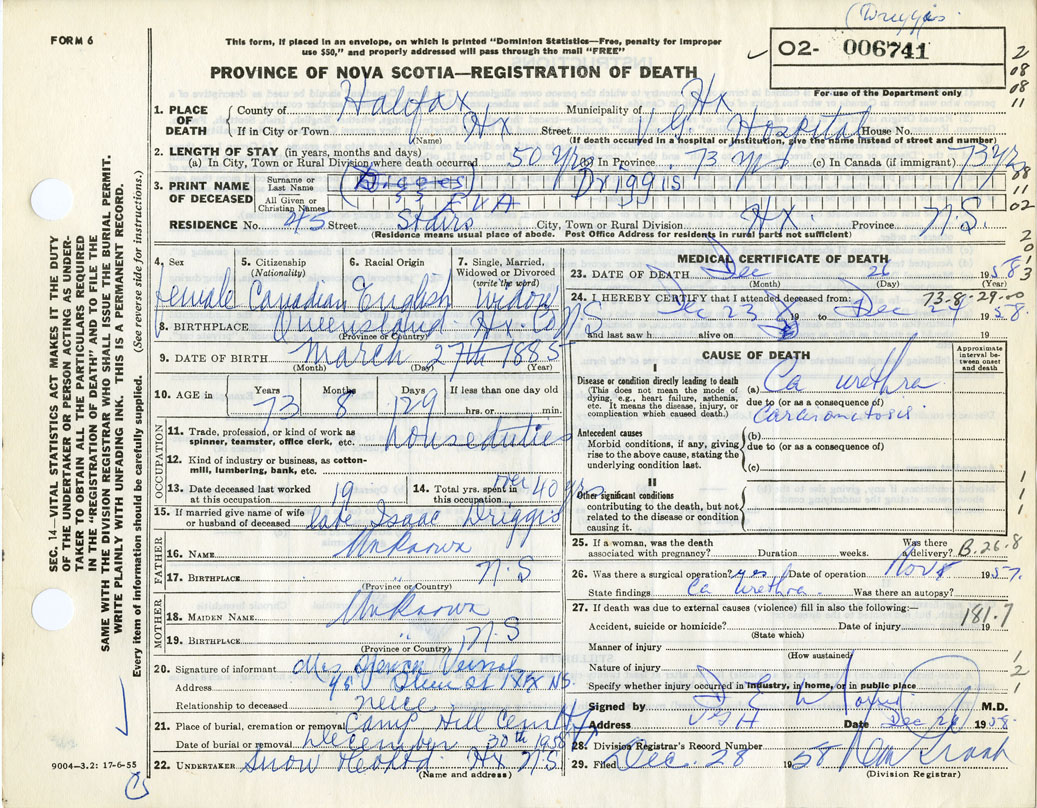 (Driggis
FORM 6
This form, if placed in an envelope, on which is printed "Dominion Statistics—Free, penalty for improper
use $50," and properly addressed will pass through the mail "FREE"
02- 006741
For use of the Department only
PROVINCE OF NOVA SCOTIA—REGISTRATION OF DEATH
2
08
08
11
1. PLACE OF DEATH { County of Halifax Municipality of Hx
If in City or Town Hx Street V.G. Hospital House No.
(Name) (If death occurred in a hospital or institution, give the name instead of street and number)
2. LENGTH OF STAY (in years, months and days)
(a) In City, Town or Rural Division where death occurred 50 yrs (b) In Province 73 yrs (c) In Canada (if immigrant) 73 yrs
3. PRINT NAME OF DECEASED { Surname or Last Name Driggis
All Given or Christian Names EVA
11
02
RESIDENCE No. 45 Street Stairs City, Town or Rural Division Hx. Province N.S.
(Residence means usual place of abode. Post Office Address for residents in rural parts not sufficient)
2
0
1
3
4. Sex female
5. Citizenship (Nationality) Canadian
6. Racial Origin English
7. Single, Married, Widowed or Divorced (write the word) widow
8. BIRTHPLACE Queensland Hx. Co. NS
(Province or Country)
9. DATE OF BIRTH March 27th 1885
(Month) (Day) (Year)
10. AGE in Years 73 Months 8 Days 29 If less than one day old
hrs. or min.
OCCUPATION
11. Trade, profession, or kind of work as
spinner, teamster, office clerk, etc. house duties
12. Kind of industry or business, as cotton-
mill, lumbering, bank, etc.
13. Date deceased last worked at this occupation 19
14. Total yrs. spent in this occupation over 40 yrs
15. If married give name of wife
or husband of deceased late Isaac Driggis
FATHER
16. NAME Unknown
17. BIRTHPLACE " N.S
(Province or Country)
MOTHER
18. MAIDEN NAME Unknown
19. BIRTHPLACE " N.S
(Province or Country)
20. Signature of informant Mrs
Address 45 St Hx NS.
Relationship to deceased neice
21. Place of burial, cremation or removal Camp Hill Cem Hx
Date of burial or removal December 30th 1958
22. UNDERTAKER Snow Hx N.S.
(Name and address)
9004—3.2: 17-6-55
SEC. 14—VITAL STATISTICS ACT MAKES IT THE DUTY
OF THE UNDERTAKER OR PERSON ACTING AS UNDER-
TAKER TO OBTAIN ALL THE PARTICULARS REQUIRED
IN THE "REGISTRATION OF DEATH" AND TO FILE THE
SAME WITH THE DIVISION REGISTRAR WHO SHALL ISSUE THE BURIAL PERMIT.
WRITE PLAINLY WITH UNFADING INK. THIS IS A PERMANENT RECORD.
Every item of information should be carefully supplied. (See reverse side for instructions.)
MEDICAL CERTIFICATE OF DEATH
23. DATE OF DEATH Dec 26 1958
(Month) (Day) (Year)
73-8-29-00
24. I HEREBY CERTIFY that I attended deceased from:
Dec 23 19 to Dec 24 1958.
and last saw h alive on 19
CAUSE OF DEATH
Approximate interval between onset and death
I
Disease or condition directly leading to death
(This does not mean the mode of
dying, e.g., heart failure, asthenia,
etc. It means the disease, injury, or
complication which caused death.)
(a) Ca urethra
due to (or as a consequence of)
Carcinomatosis.
Antecedent causes
Morbid conditions, if any, giving
rise to the above cause, stating the
underlying condition last.
(b)
due to (or as a consequence of)
(c)
II
Other significant conditions
contributing to the death, but not
related to the disease or condition
causing it.
1
1
1
25. If a woman, was the death
associated with pregnancy? Duration weeks. Was there a delivery? B.26.8
26. Was there a surgical operation? yes Date of operation Nov 1957.
State findings Ca urethra. Was there an autopsy?
27. If death was due to external causes (violence) fill in also the following:—
Accident, suicide or homicide? Date of injury 19
(State which)
181.7
Manner of injury
(How sustained)
Nature of injury
Specify whether injury occurred in industry, in home, or in public place
1
2
1
Signed by M.D.
Address VGH Date Dec 26 1958.
28. Division Registrar's Record Number
29. Filed Dec. 28 1958
(Division Registrar)